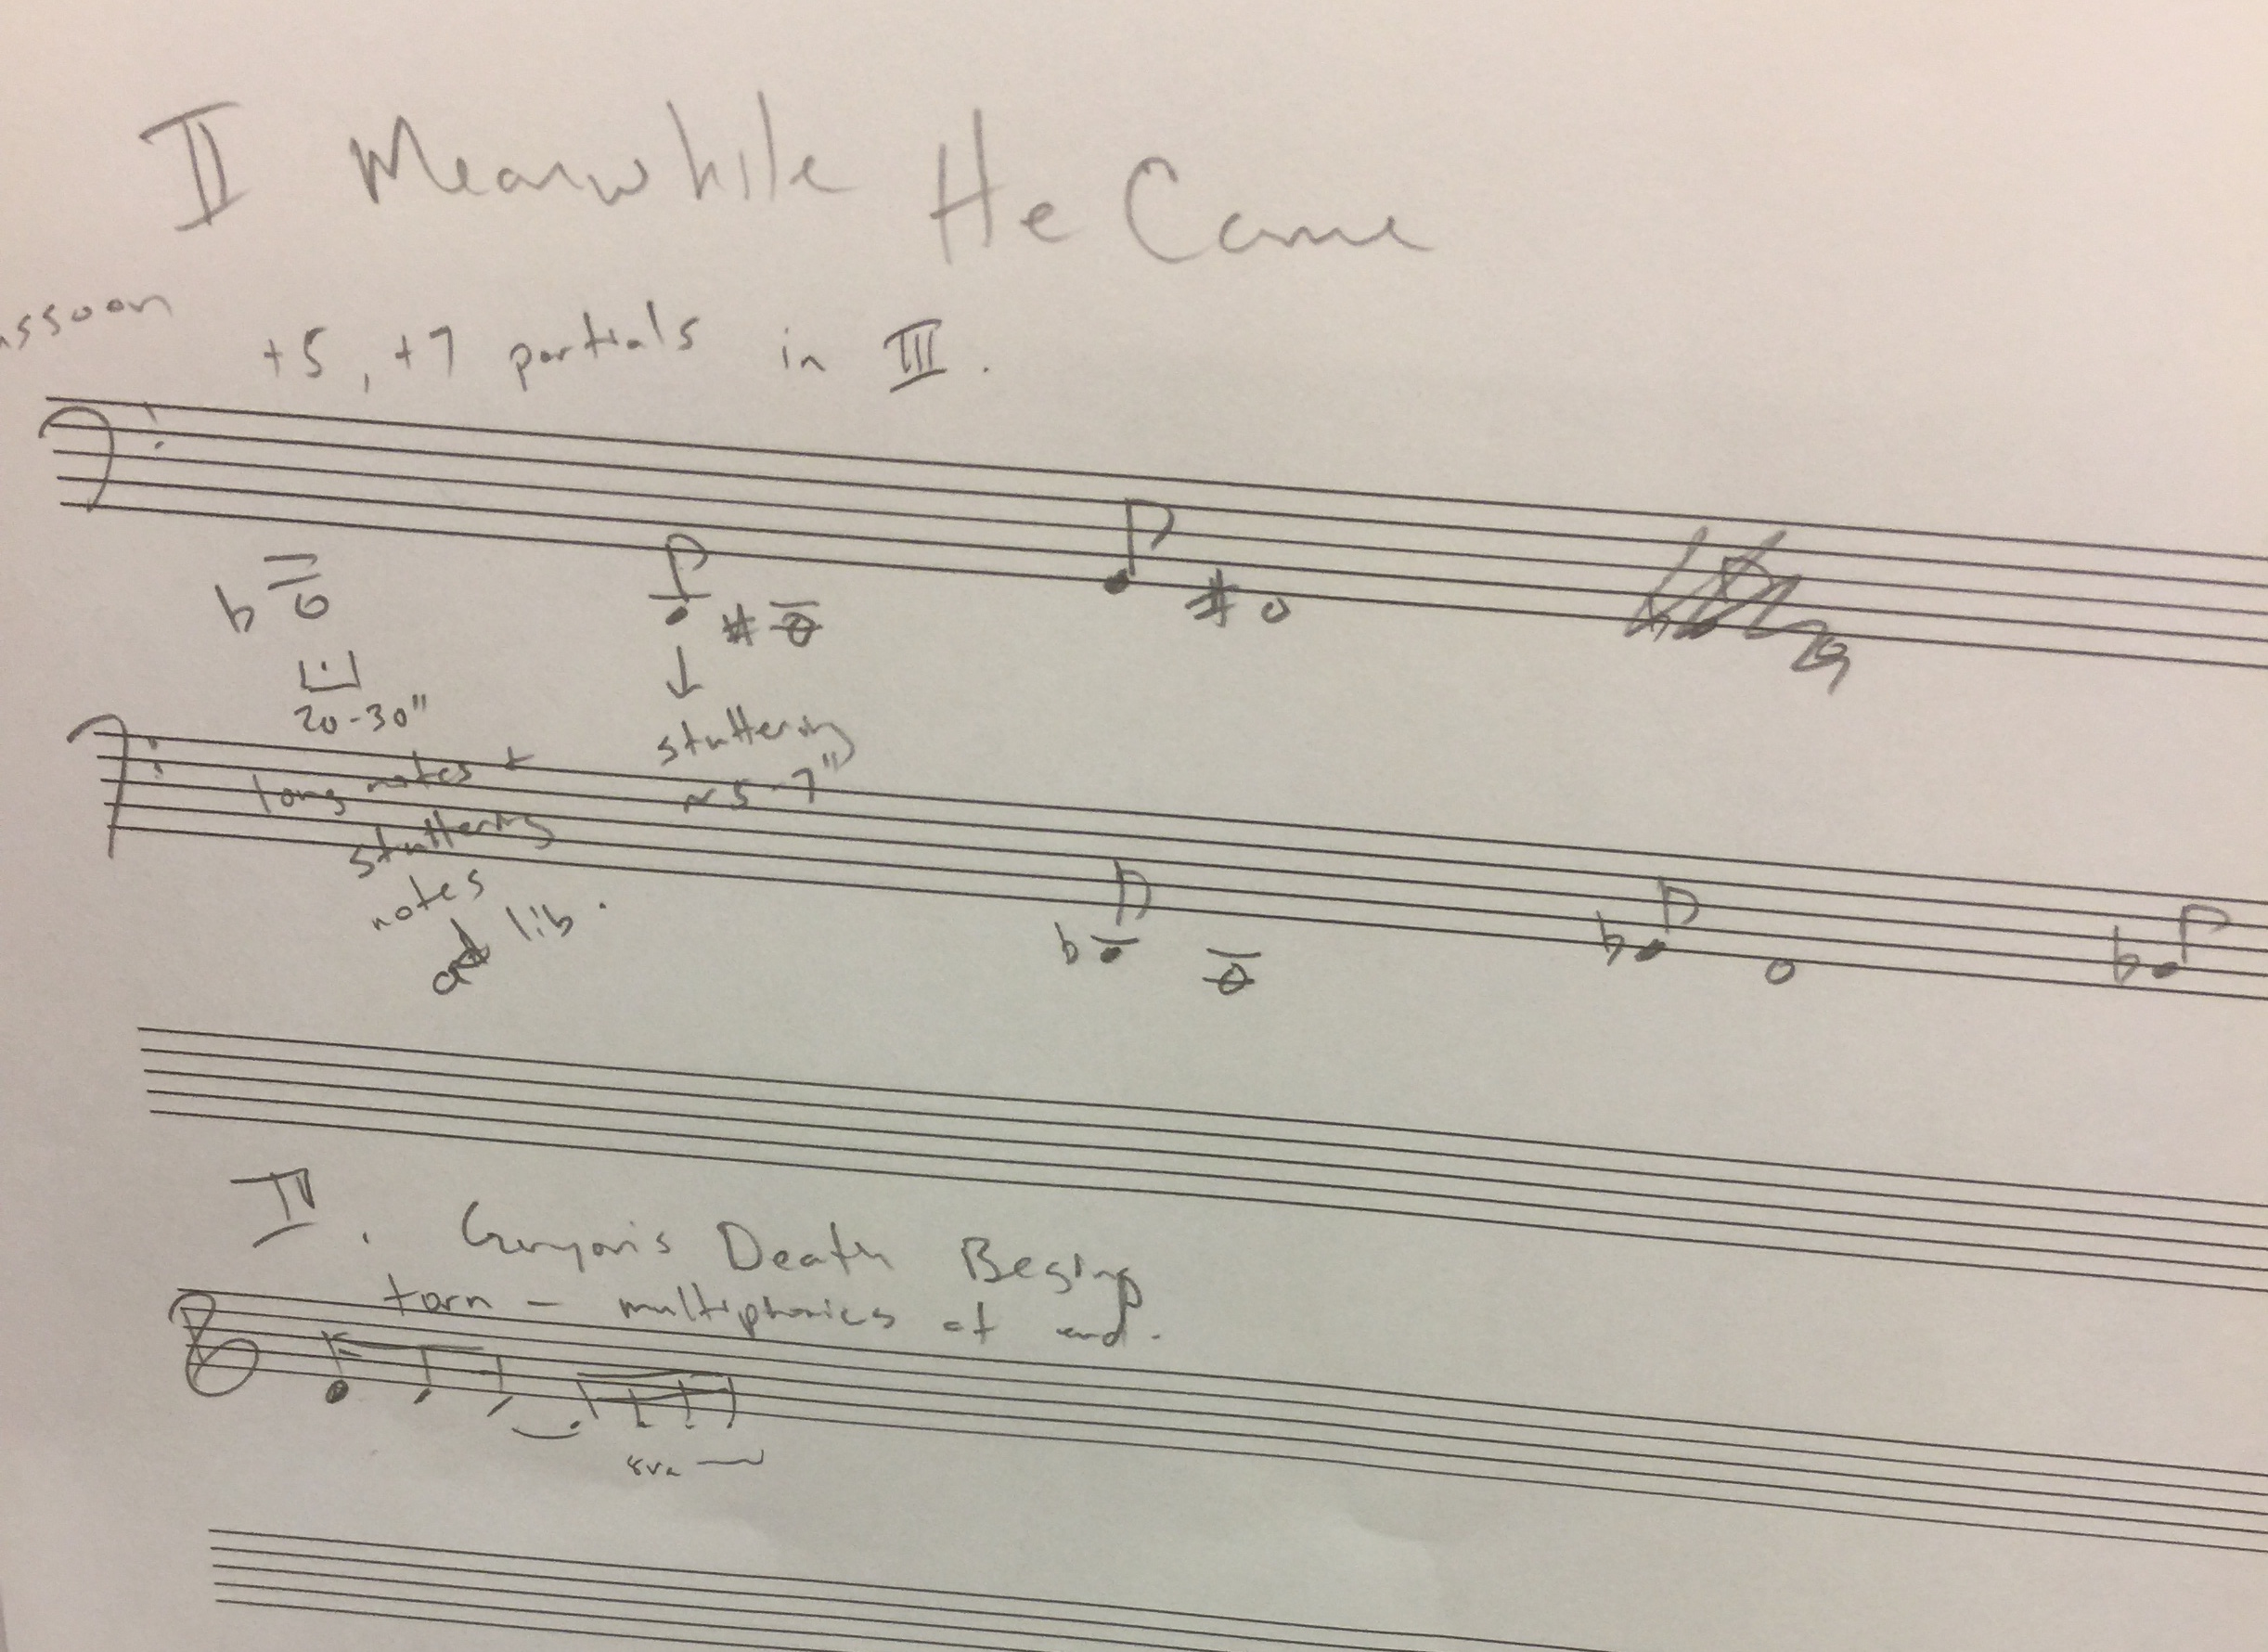 II Meanwhile He Came
assoon
+5, +7 partials in III.
20-30"
long notes +
stuttering
notes
ad lib.
stuttering
~5-7"
IV. Geryon's Death Begins
torn - multiphonics at end.
8va